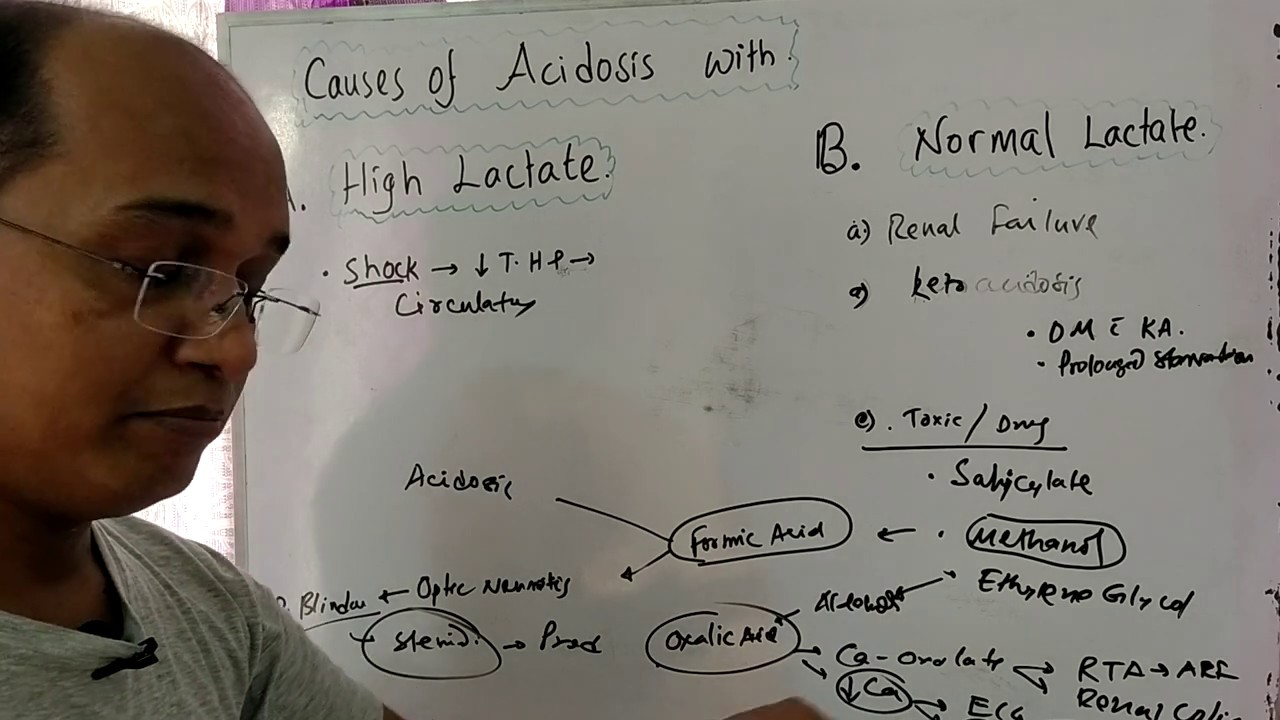 Causes of Acidosis with
A. High Lactate.
• Shock → ↓ T.H.P →
Circulatory
B. Normal Lactate.
a) Renal Failure
ketoacidosis
• DM c̄ KA.
• Prolonged Starvation
e). Toxic / Drug
• Salicylate
Acidosis
Formic Acid ← • Methanol
Blindness ← Optic Neuritis
Ethylene Glycol
Steroid. → Pred
Oxalic Acid
Ca-oxalate → RTA → ARF
↓Ca → ECG
Renal Colic